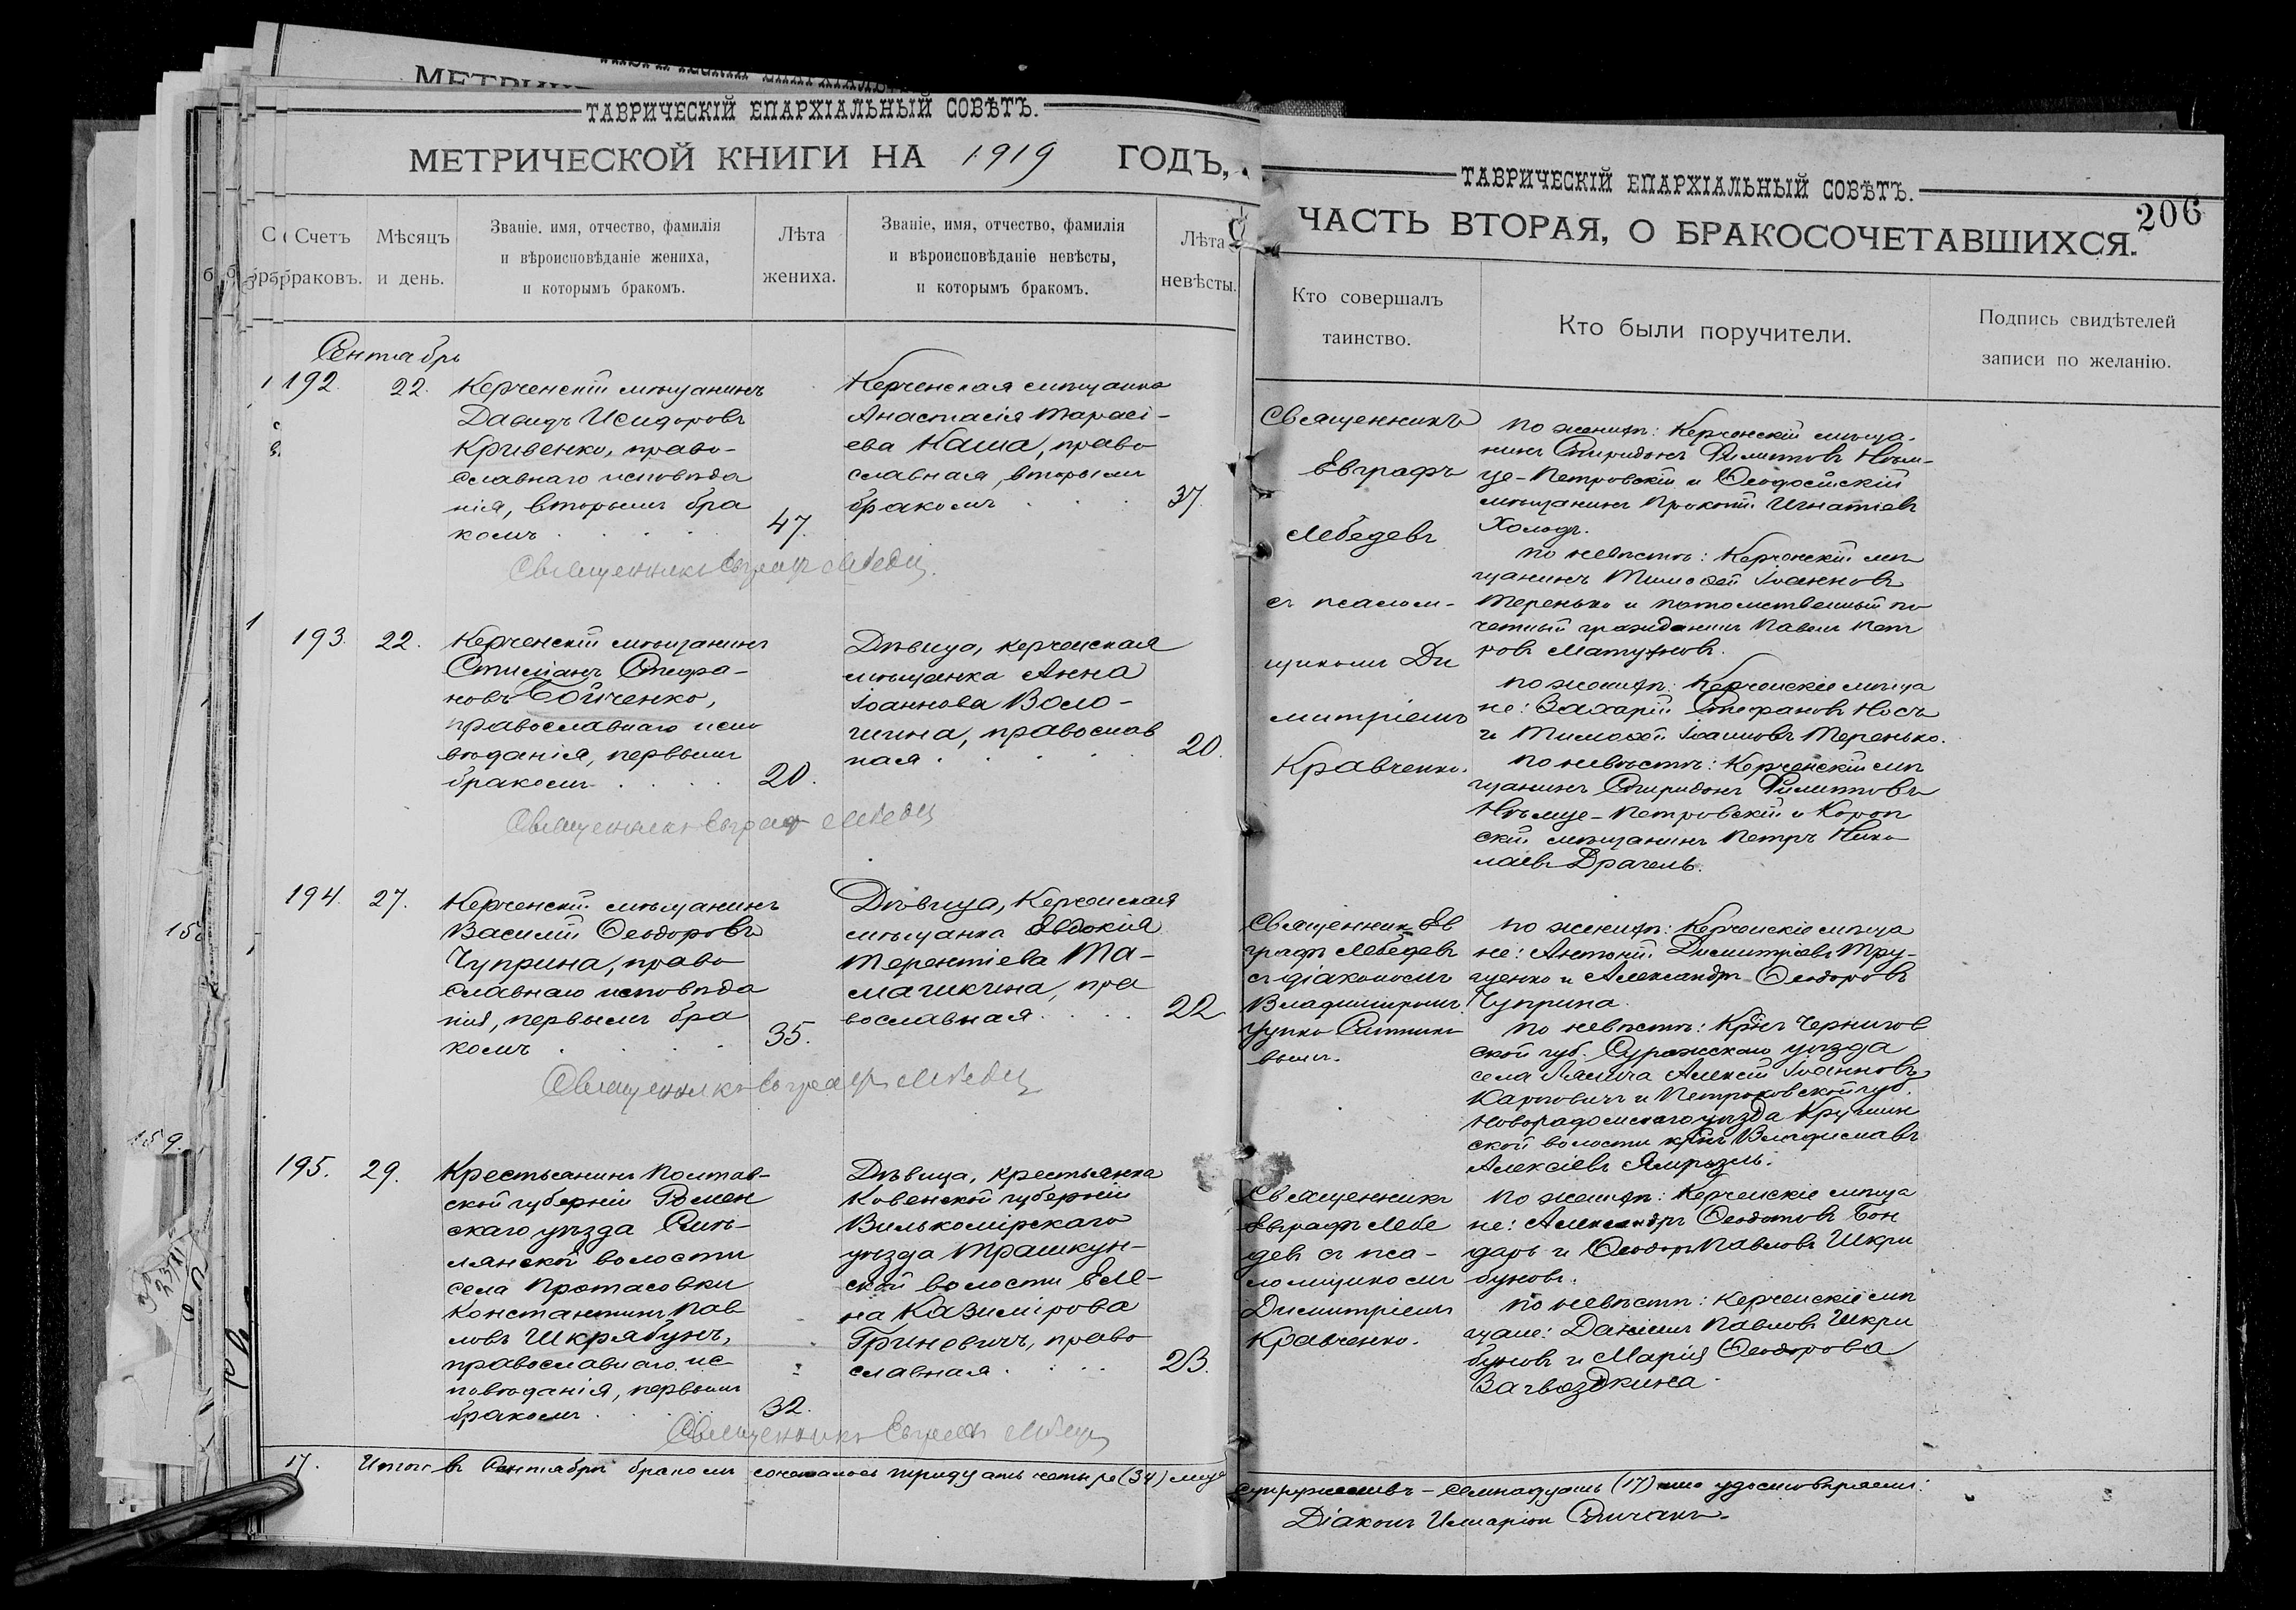 ТАВРИЧЕСКІЙ ЕПАРХІАЛЬНЫЙ СОВѢТЪ.
МЕТРИЧЕСКОЙ КНИГИ НА 1919 ГОДЪ,
Счетъ браковъ.
Мѣсяцъ и день.
Званіе. имя, отчество, фамилія
и вѣроисповѣданіе жениха,
и которымъ бракомъ.
Лѣта
жениха.
Званіе, имя, отчество, фамилія
и вѣроисповѣданіе невѣсты,
и которымъ бракомъ.
Лѣта
невѣсты.
Сентябрь
192. 22.
Керченскій мѣщанинъ
Давидъ Исидоровъ
Кривенко, право-
славнаго исповѣда
нія, вторымъ бра
комъ 47.
Керченская мѣщанка
Анастасія Тарасі-
ева Каша, право
славная, вторымъ
бракомъ 37.
Священникъ Евграфъ Лебедевъ
193. 22.
Керченскій мѣщанинъ
Стиліанъ Стефа-
новъ Бойченко,
православнаго испо
вѣданія, первымъ
бракомъ 20.
Дѣвица, керченская
мѣщанка Анна
Іоаннова Воло-
шина, православ
ная 20.
Священникъ Евграфъ Лебедевъ
194. 27.
Керченскій мѣщанинъ
Василій Ѳеодоровъ
Чуприна, право
славнаго исповѣда
нія, первымъ бра
комъ 35.
Дѣвица, Керченская
мѣщанка Евдокія
Терентіева Та-
машкина, пра
вославная 22
Священникъ Евграфъ Лебедевъ
195. 29.
Крестьянинъ Полтав-
ской губерніи Ромен
скаго уѣзда Смѣ-
лянской волости
села Протасовки
Константинъ Пав
ловъ Шкрябунъ,
православнаго ис-
повѣданія, первымъ
бракомъ 32.
Дѣвица, крестьянка
Ковенской губерніи
Вилькомірскаго
уѣзда Трашкун-
ской волости Еле-
на Казимірова
Гриневичъ, право
славная 23.
Священникъ Евграфъ Лебедевъ
17. Итого въ Сентябрѣ бракомъ сочеталось тридцать четыре (34) лица
ТАВРИЧЕСКІЙ ЕПАРХІАЛЬНЫЙ СОВѢТЪ.
206
ЧАСТЬ ВТОРАЯ, О БРАКОСОЧЕТАВШИХСЯ.
Кто совершалъ
таинство.
Кто были поручители.
Подпись свидѣтелей
записи по желанію.
Священникъ
Евграфъ
Лебедевъ
съ псалом-
щикомъ Ди
митріемъ
Кравченко.
по женихѣ: Керченскій мѣща-
нинъ Спиридонъ Филиповъ Нѣм-
це-Петровскій и Ѳеодосійскій
мѣщанинъ Прокопій Игнатіевъ
Холодъ.
по невѣстѣ: Керченскій мѣ
щанинъ Тимоѳей Іоанновъ
Теренько и потомственный по
четный гражданинъ Павелъ Пет
ровъ
по женихѣ: Керченскіе мѣща
не: Захарій Стефановъ Носъ
и Тимоѳей Іоанновъ Теренько.
по невѣстѣ: Керченскій мѣ
щанинъ Спиридонъ Филиповъ
Нѣмце-Петровскій и Короп
скій мѣщанинъ Петръ Нико
лаевъ Драгель.
Священникъ Ев
графъ Лебедевъ
съ діакономъ
Владиміромъ
по женихѣ: Керченскіе мѣща
не: Антоній Димитріевъ Тру-
щенко и Александръ Ѳеодоровъ
Чуприна.
по невѣстѣ: Крнъ Чернигов
ской губ. Суражскаго уѣзда
села Лялича Алексій Іоанновъ
Карповичъ и Петроковской губ.
Новорадомскаго уѣзда Кружин
ской волости крнъ Владиславъ
Алексіевъ
Священникъ
Евграфъ Лебе
девъ съ пса-
ломщикомъ
Димитріемъ
Кравченко.
по женихѣ: Керченскіе мѣща
не: Александръ Ѳеодотовъ Бон
дарь и Ѳеодоръ Павловъ Шкри
буновъ.
по невѣстѣ: Керченскіе мѣ
щане: Даніилъ Павловъ Шкри
буновъ и Марія Ѳеодорова
Загвоздкина.
супружествъ - семнадцать (17) что удостовѣряемъ:
Діаконъ Иларіон